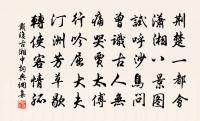 荊楚一都會
瀟湘八景圖
試呼沙鳥問
曾識古人無
痛哭賈太傅
行吟屈大夫
汀洲芳草歇
轉使客情孤
戴復古湘中詞典網集